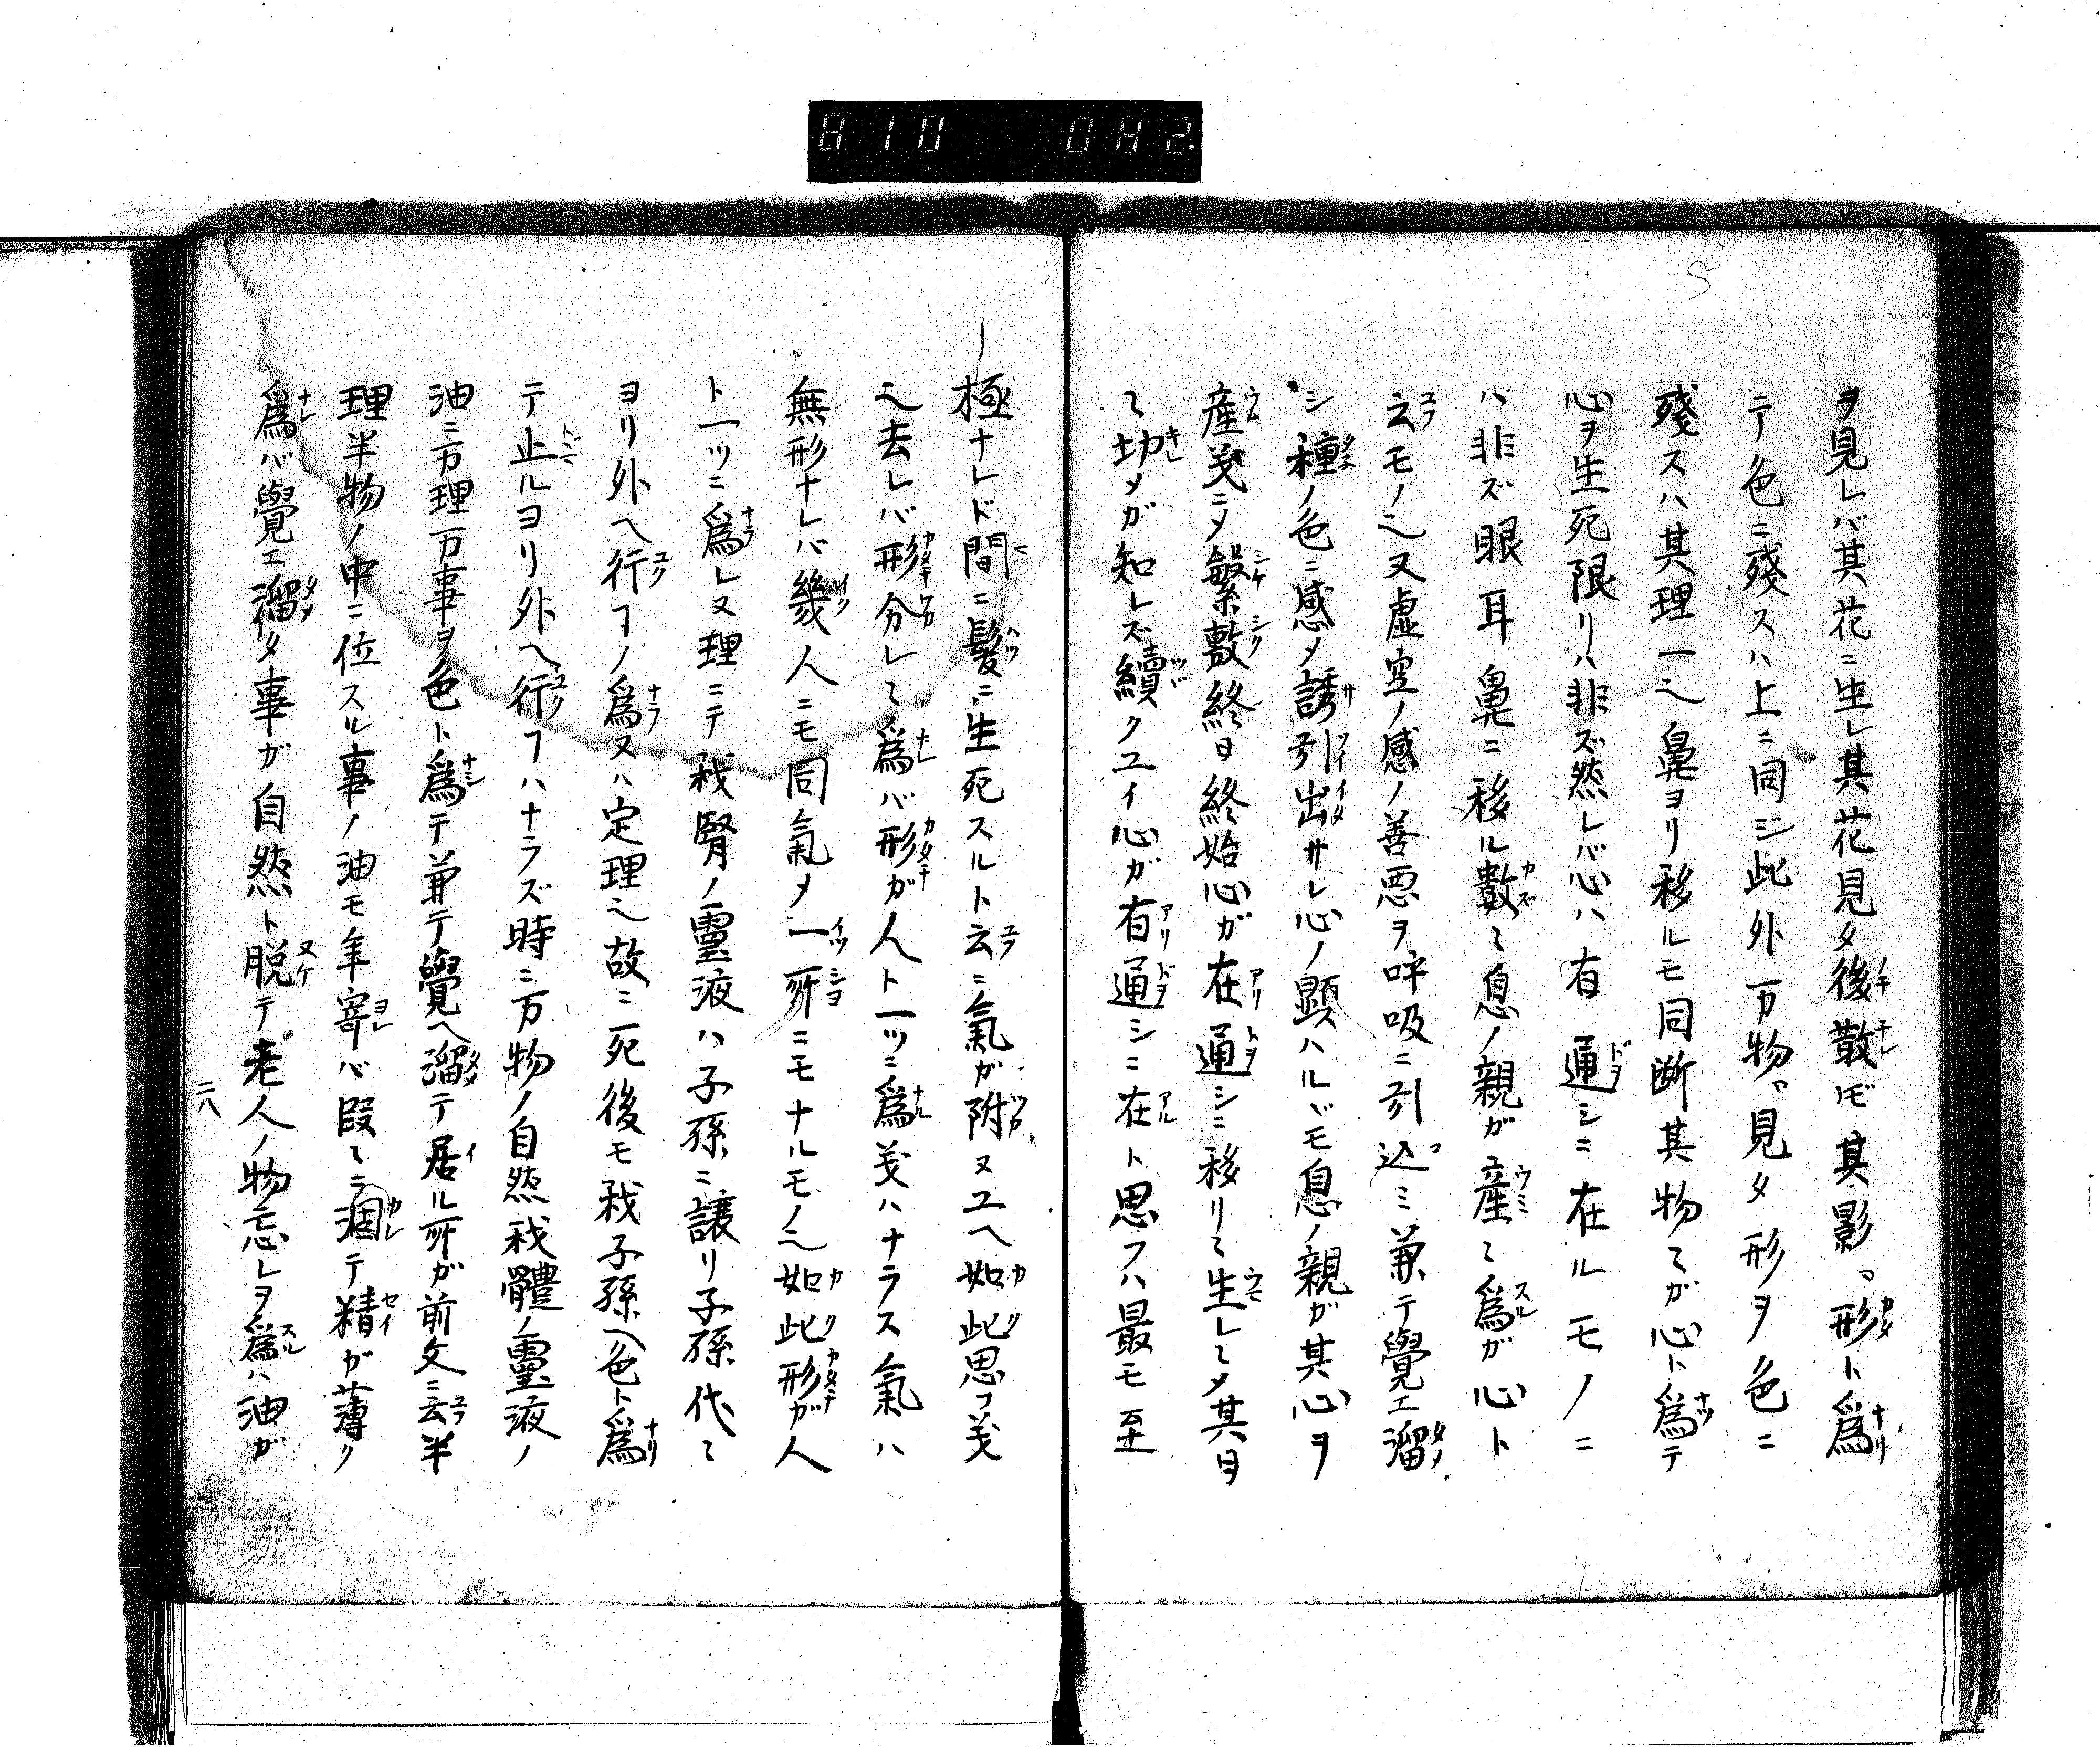 810 082.
ヲ見レバ其花ニ生レ其花見タ後散ﾓ其影ﾂ形ト爲
テ色ニ殘スハ上ニ同シ此外万物ﾂ見タ形ヲ色ニ
殘スハ其理一ヘ鼻ヨリ移ルモ同断其物〻ガ心ト爲テ
心ヲ生死限リハ非ズ然レバ心ハ有通シニ在ルモノニ
ハ非ズ眼耳鼻ニ移ル數〻息ノ親ガ産〻爲ガ心ト
云モノヘ又虚空ノ感ノ善悪ヲ呼吸ニ引込ミ兼テ覺エ溜
シ種ノ色ニ感メ誘引出サレ心ノ顕ハルヾモ息ノ親ガ其心ヲ
産義ニメ繁敷終日終始心ガ在通シニ移リ〻生レ〻メ其日
〻切メガ知レズ續クユイ心ガ有通シニ在ト思フハ最モ至
極ナレド間ニ髪ニ生死スルト云ニ氣ガ附ヌユヘ如此思フ義
ヘ去レバ形分レ〻爲バ形ガ人ト一ツニ爲義ハナラス氣ハ
無形ナレバ幾人ニモ同氣メ一所ニモナルモノヘ如此形ガ人
ト一ツニ爲レヌ理ニテ我腎ノ靈液ハ子孫ニ譲リ子孫代〻
ヨリ外ヘ行ヿノ爲ヌハ定理ヘ故ニ死後モ我子孫ヘ色ト爲
テ止ルヨリ外ヘ行ヿハナラズ時ニ万物ノ自然我體ノ靈液ノ
油ニ万理万事ヲ色ト爲テ兼テ覺ヘ溜テ居ル所ガ前文ニ云半
理半物ノ中ニ位スル事ノ油モ年寄バ段〻ニ涸テ精ガ薄ク
爲バ覺エ溜タ事ガ自然ト脱テ老人ノ物忘レヲ爲ハ油ガ
二八